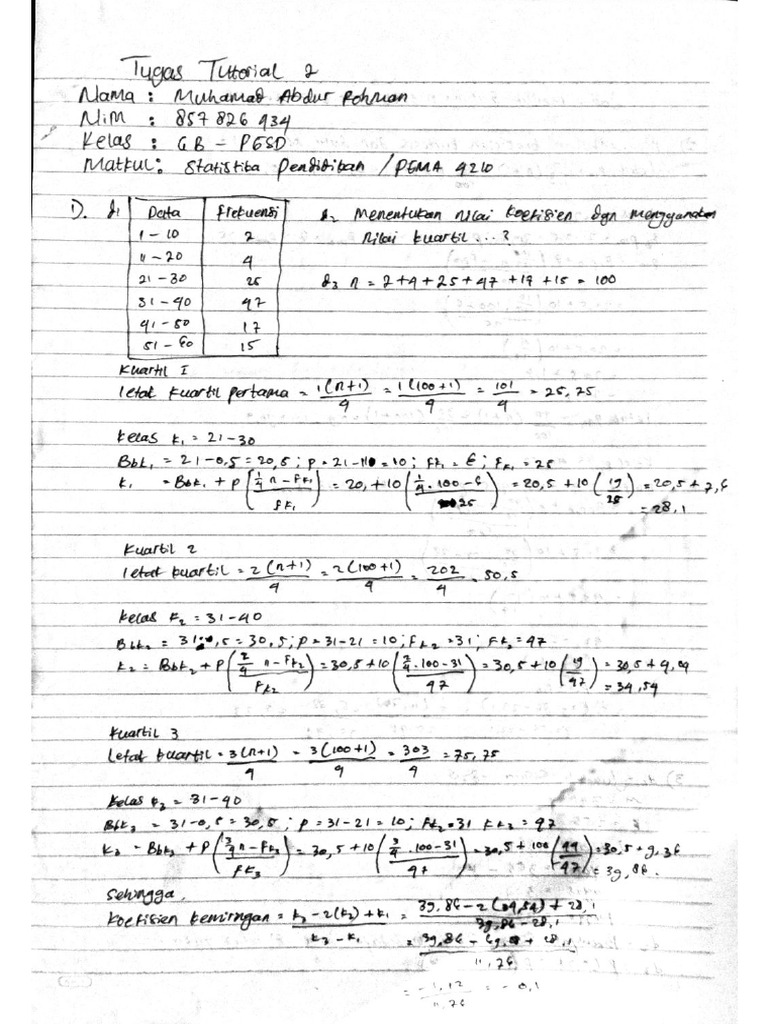 Tugas Tutorial 2
Nama : Muhamad Abdur Rohman
Nim : 857 826 434
Kelas : 6B - PGSD
Matkul : Statistika Pendidikan / PEMA 4210
1). d1 Data Frekuensi d2 Menentukan nilai koefisien dgn menggunakan
1 - 10 2 nilai kuartil...?
11 - 20 4
21 - 30 25 d3 n = 2+4+25+47+17+15 = 100
31 - 40 47
41 - 50 17
51 - 60 15
Kuartil I
letak kuartil pertama = 1(n+1)/4 = 1(100+1)/4 = 101/4 = 25,25
Kelas K1 = 21-30
Bbk1 = 21-0,5 = 20,5 ; p = 21-11 = 10 ; Fk1 = 6 ; fk1 = 25
K1 = Bbk1 + p (1/4 n - Fk1 / fk1) = 20, + 10 (1/4 . 100 - 6 / 25) = 20,5 + 10 (19/25) = 20,5 + 7,6
= 28,1
Kuartil 2
letak kuartil = 2(n+1)/4 = 2(100+1)/4 = 202/4 = 50,5
Kelas K2 = 31-40
Bbk2 = 31-0,5 = 30,5 ; p = 31-21 = 10 ; Fk2 = 31 ; fk2 = 47
K2 = Bbk2 + p (2/4 n - Fk2 / fk2) = 30,5 + 10 (2/4 . 100 - 31 / 47) = 30,5 + 10 (19/47) = 30,5 + 4,04
= 34,54
Kuartil 3
letak kuartil = 3(n+1)/4 = 3(100+1)/4 = 303/4 = 75,75
Kelas K2 = 31-40
Bbk3 = 31-0,5 = 30,5 ; p = 31-21 = 10 ; Fk2 = 31 fk3 = 47
K3 = Bbk3 + p (3/4 n - Fk3 / fk3) = 30,5 + 10 (3/4 . 100 - 31 / 47) = 30,5 + 10 (44/47) = 30,5 + 9,36
= 39,86.
Sehingga,
Koefisien kemiringan = K3 - 2(K2) + K1 / K3 - K1 = 39,86 - 2(34,54) + 28,1 / 39,86 - 28,1
= 39,86 - 69,08 + 28,1 / 11,76
= -1,12 / 11,76 = -0,1